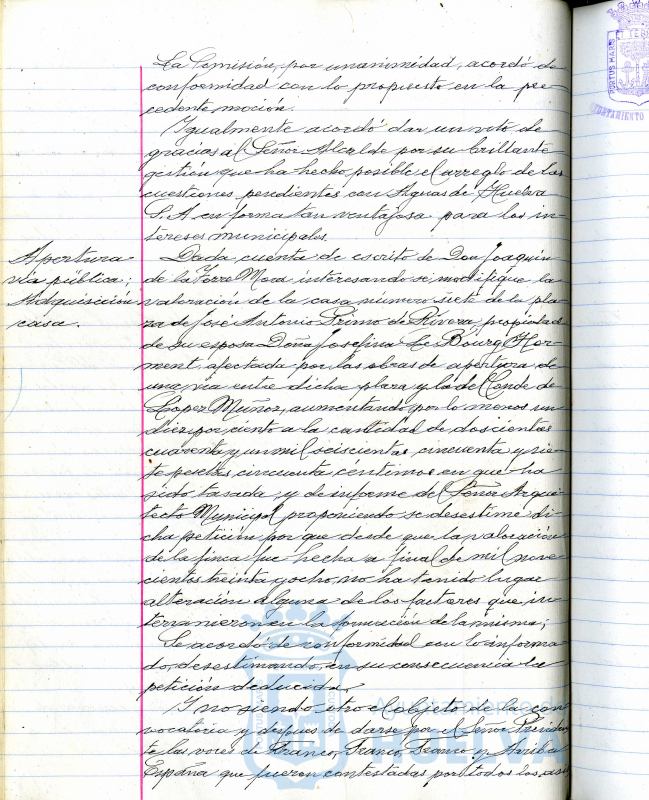 La Comisión, por unanimidad, acordó de
conformidad con lo propuesto en la pre-
cedente moción.
Igualmente acordó dar un voto de
gracias al Señor Alcalde por su brillante
gestión que ha hecho posible el arreglo de las
cuestiones pendientes con Aguas de Huelva
S. A. en forma tan ventajosa para los in-
tereses municipales.
Apertura
vía pública;
Adquisición
casa.
Dada cuenta de escrito de Don Joaquín
de la Torre Mora, interesando se modifique la
valoración de la casa número siete de la pla-
za de José Antonio Primo de Rivera, propiedad
de su esposa Doña Josefina Le Bourg Her-
ment, afectada por las obras de apertura de
una vía entre dicha plaza y la de Conde de
López Muñoz, aumentando por lo menos un
diez por ciento a la cantidad de doscientas
cuarenta y un mil seiscientas cincuenta y sie-
te pesetas, cincuenta céntimos en que ha
sido tasada, y de informe del Señor Arqui-
tecto Municipal proponiendo se desestime di-
cha petición por que desde que la valoración
de la finca fue hecha a final de mil nove-
cientos treinta y ocho, no ha tenido lugar
alteración alguna de los factores que in-
tervinieron en la formación de la misma;
Se acordó de conformidad con lo informa-
do, desestimando, en su consecuencia la
petición deducida.
Y no siendo otro el objeto de la con-
vocatoria y después de darse por el Señor Presiden-
te las voces de Franco, Franco, Franco y Arriba
España que fueron contestadas por todos los asis-
PORTUS MARIS
AYUNTAMIENTO
Ayuntamiento de
HUELVA